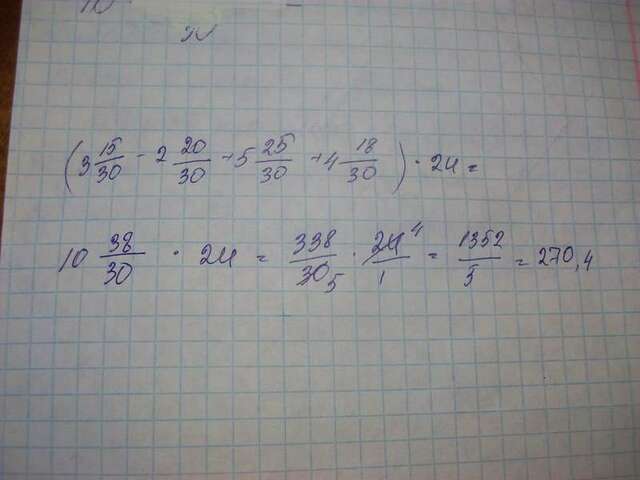 (3 15/30 - 2 20/30 + 5 25/30 + 4 18/30) · 24 =
10 38/30 · 24 = 338/30 5 · 24 4/1 = 1352/5 = 270,4